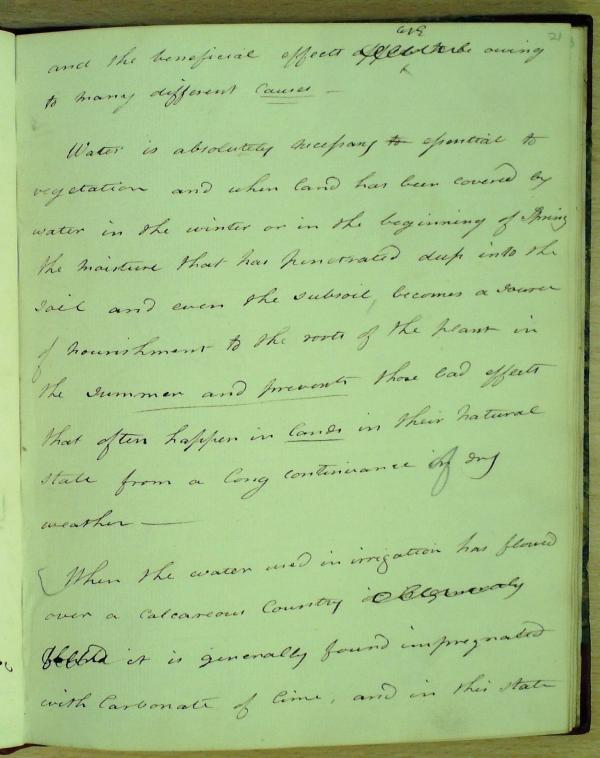 21
are
and the beneficial effects owing
to many different causes –
Water is absolutely necessary to essential to
vegetation and when land has been covered by
water in the winter or in the beginning of Spring
the moisture that has penetrated deep into the
soil and even the subsoil, becomes a source
of nourishment to the roots of the plant in
the summer and prevents those bad effects
that often happen in lands in their natural
state from a long continuance of dry
weather —
When the water used in irrigation has flowed
over a calcareous Country
it is generally found impregnated
with Carbonate of lime, and in this state